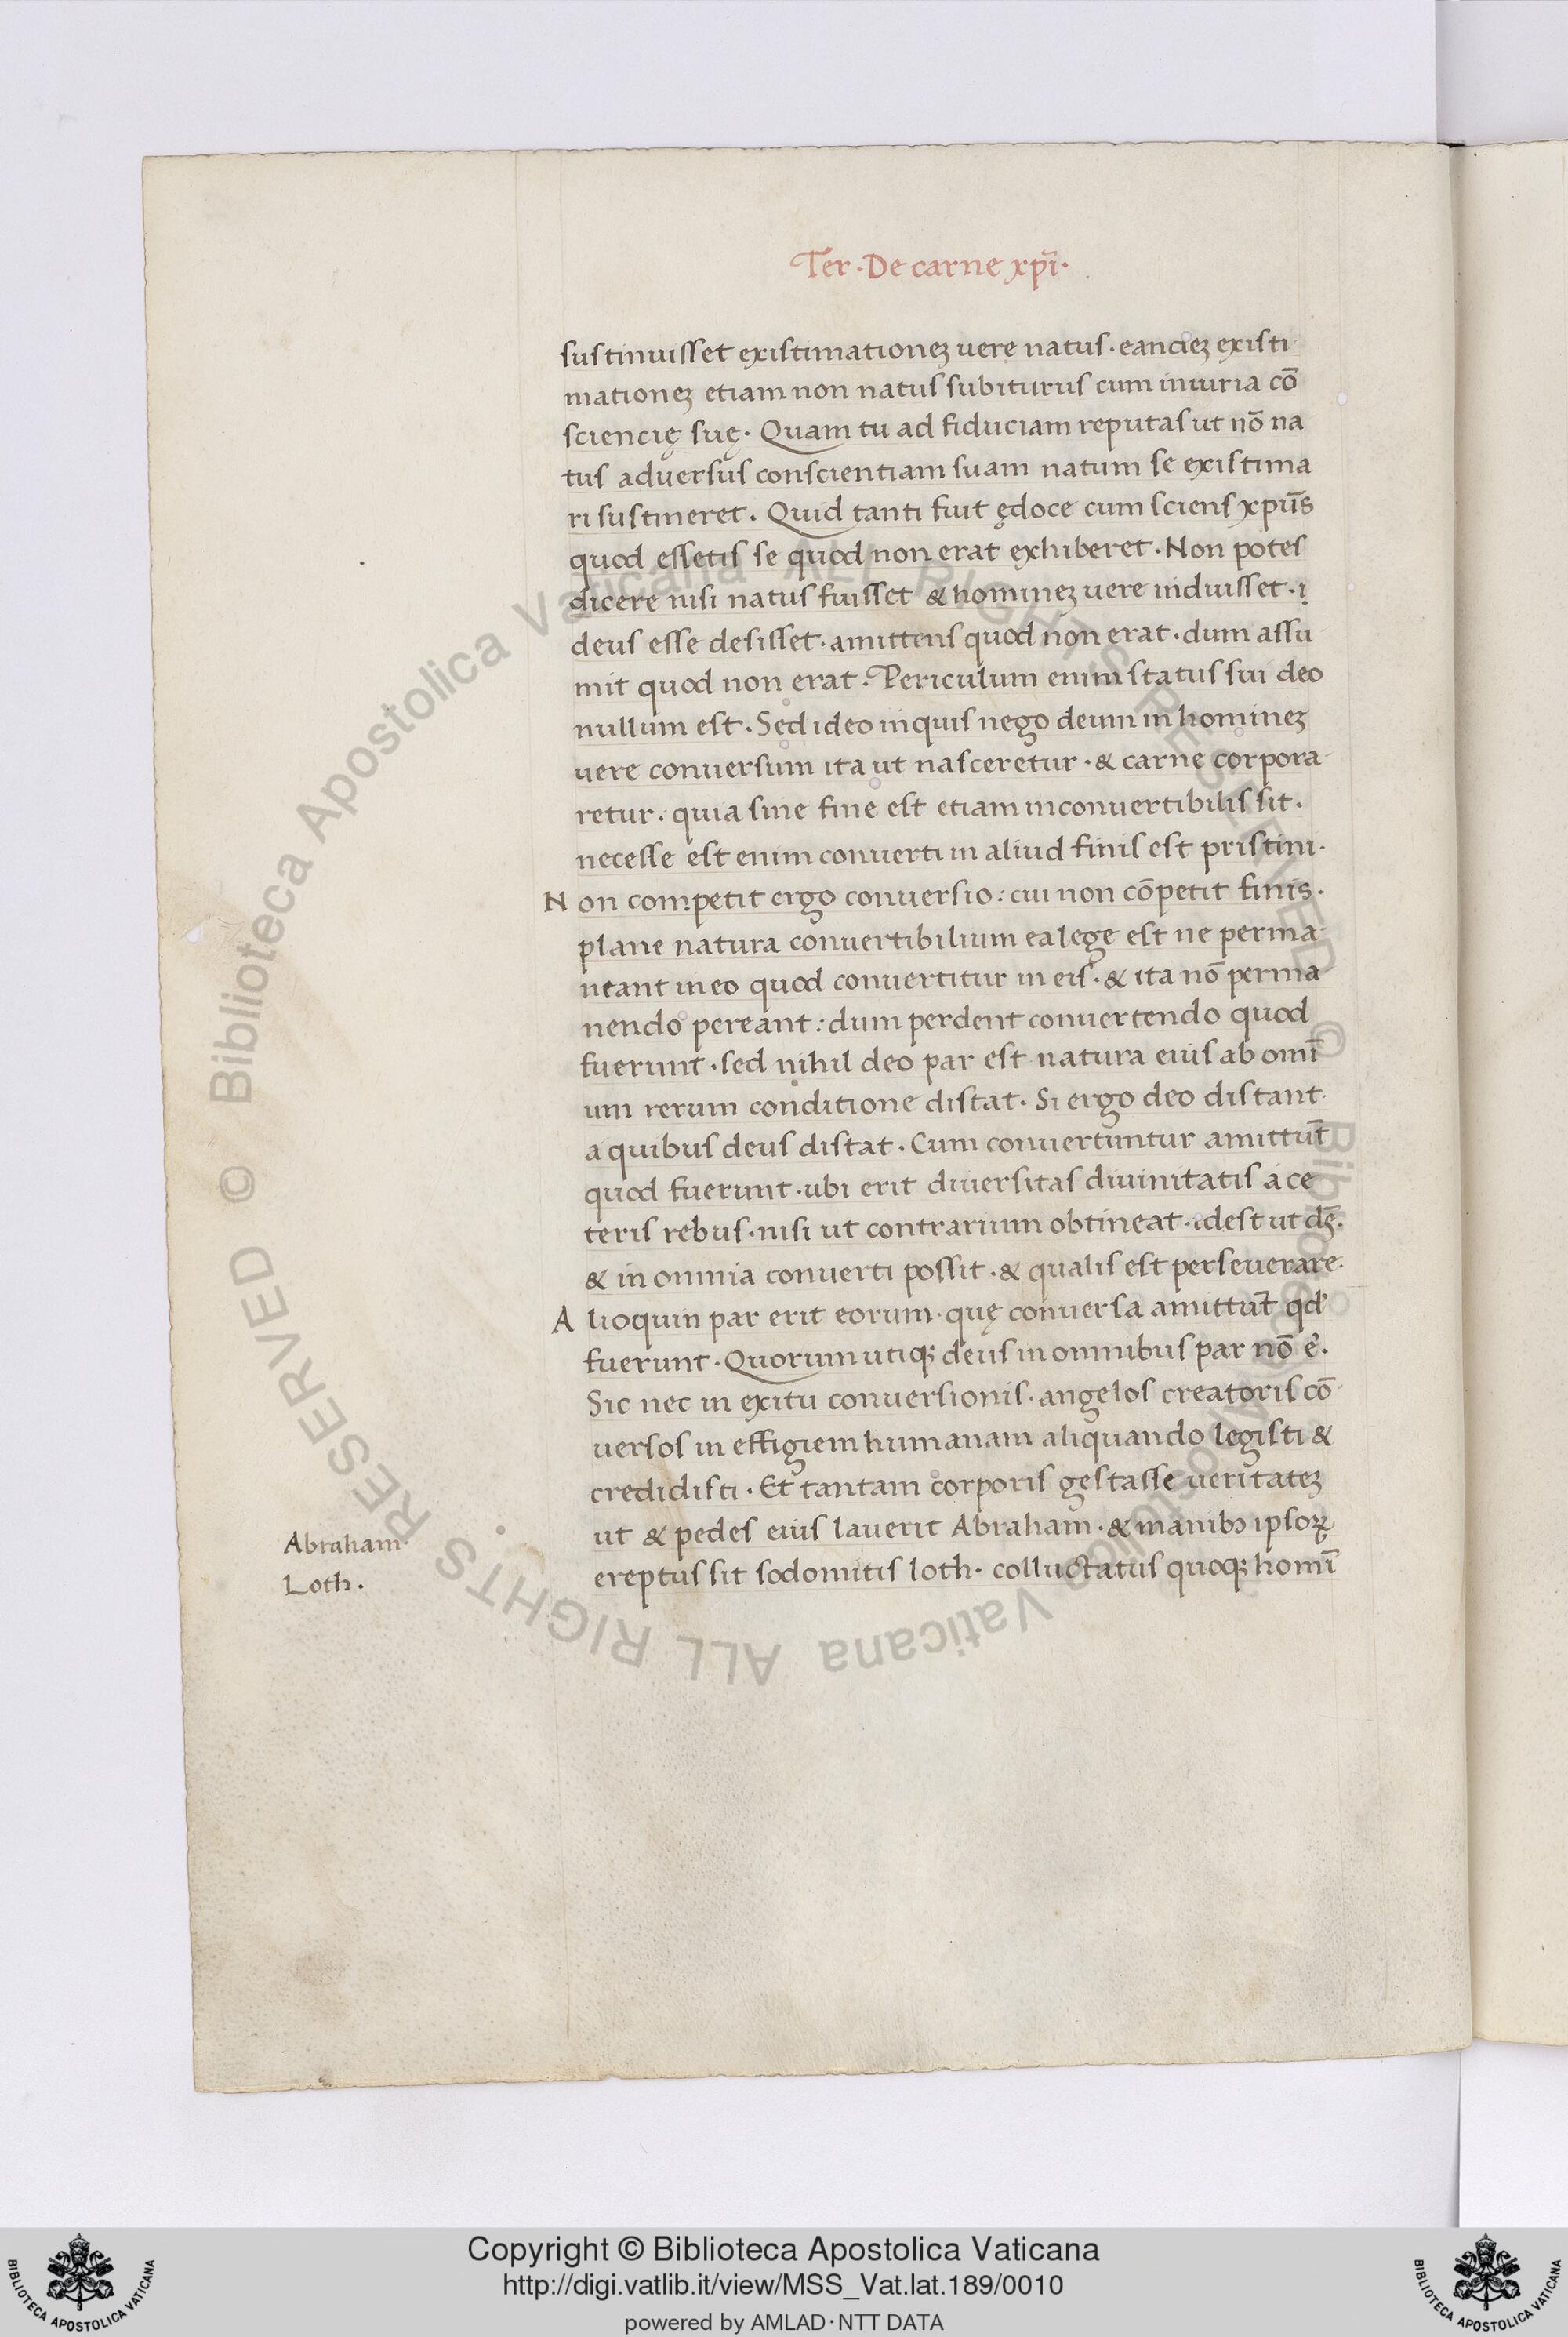 Ter · De carne xp̄i ·
sustinuisset existimationeȝ uere natus · eandeȝ existi
mationeȝ etiam non natus subiturus cum iniuria cō
sciencię suę · Quam tu ad fiduciam reputas ut nō na
tus aduersus conscientiam suam natum se existima
ri sustineret · Quid tanti fuit ędoce cum sciens xp̄us
quod essetis se quod non erat exhiberet · Non potes
dicere nisi natus fuisset & homineȝ uere induisset · i
deus esse desisset · amittens quod non erat · dum assu
mit quod non erat · Periculum enim status sui deo
nullum est · Sed ideo inquis nego deum in homineȝ
uere conuersum ita ut nasceretur · & carne corpora
retur · quia sine fine est etiam inconuertibilis sit ·
necesse est enim conuerti in aliud finis est pristini ·
Non competit ergo conuersio : cui non cōpetit finis ·
plane natura conuertibilium ea lege est ne perma
neant in eo quod conuertitur in eis · & ita nō perma
nendo pereant : dum perdent conuertendo quod
fuerunt · sed nihil deo par est natura eius ab omī
um rerum conditione distat · Si ergo deo distant
a quibus deus distat · Cum conuertuntur amittūt
quod fuerunt · ubi erit diuersitas diuinitatis a ce
teris rebus · nisi ut contrarium obtineat · idest ut ds̄ ·
& in omnia conuerti possit · & qualis est perseuerare ·
Alioquin par erit eorum · quę conuersa amittūt qd'
fuerunt · Quorum utiqȝ deus in omnibus par nō ē ·
Sic nec in exitu conuersionis · angelos creatoris cō
uersos in effigiem humanam aliquando legisti &
credidisti · Et tantam corporis gestasse ueritateȝ
ut & pedes eius lauerit Abraham · & manibꝫ ipsoꝝ
ereptus sit sodomitis loth · colluctatus quoqȝ homī
Abraham
Loth ·
Copyright © Biblioteca Apostolica Vaticana
http://digi.vatlib.it/view/MSS_Vat.lat.189/0010
powered by AMLAD·NTT DATA
BIBLIOTECA APOSTOLICA VATICANA
BIBLIOTECA APOSTOLICA VATICANA
© Biblioteca Apostolica Vaticana ALL RIGHTS RESERVED
© Biblioteca Apostolica Vaticana ALL RIGHTS RESERVED